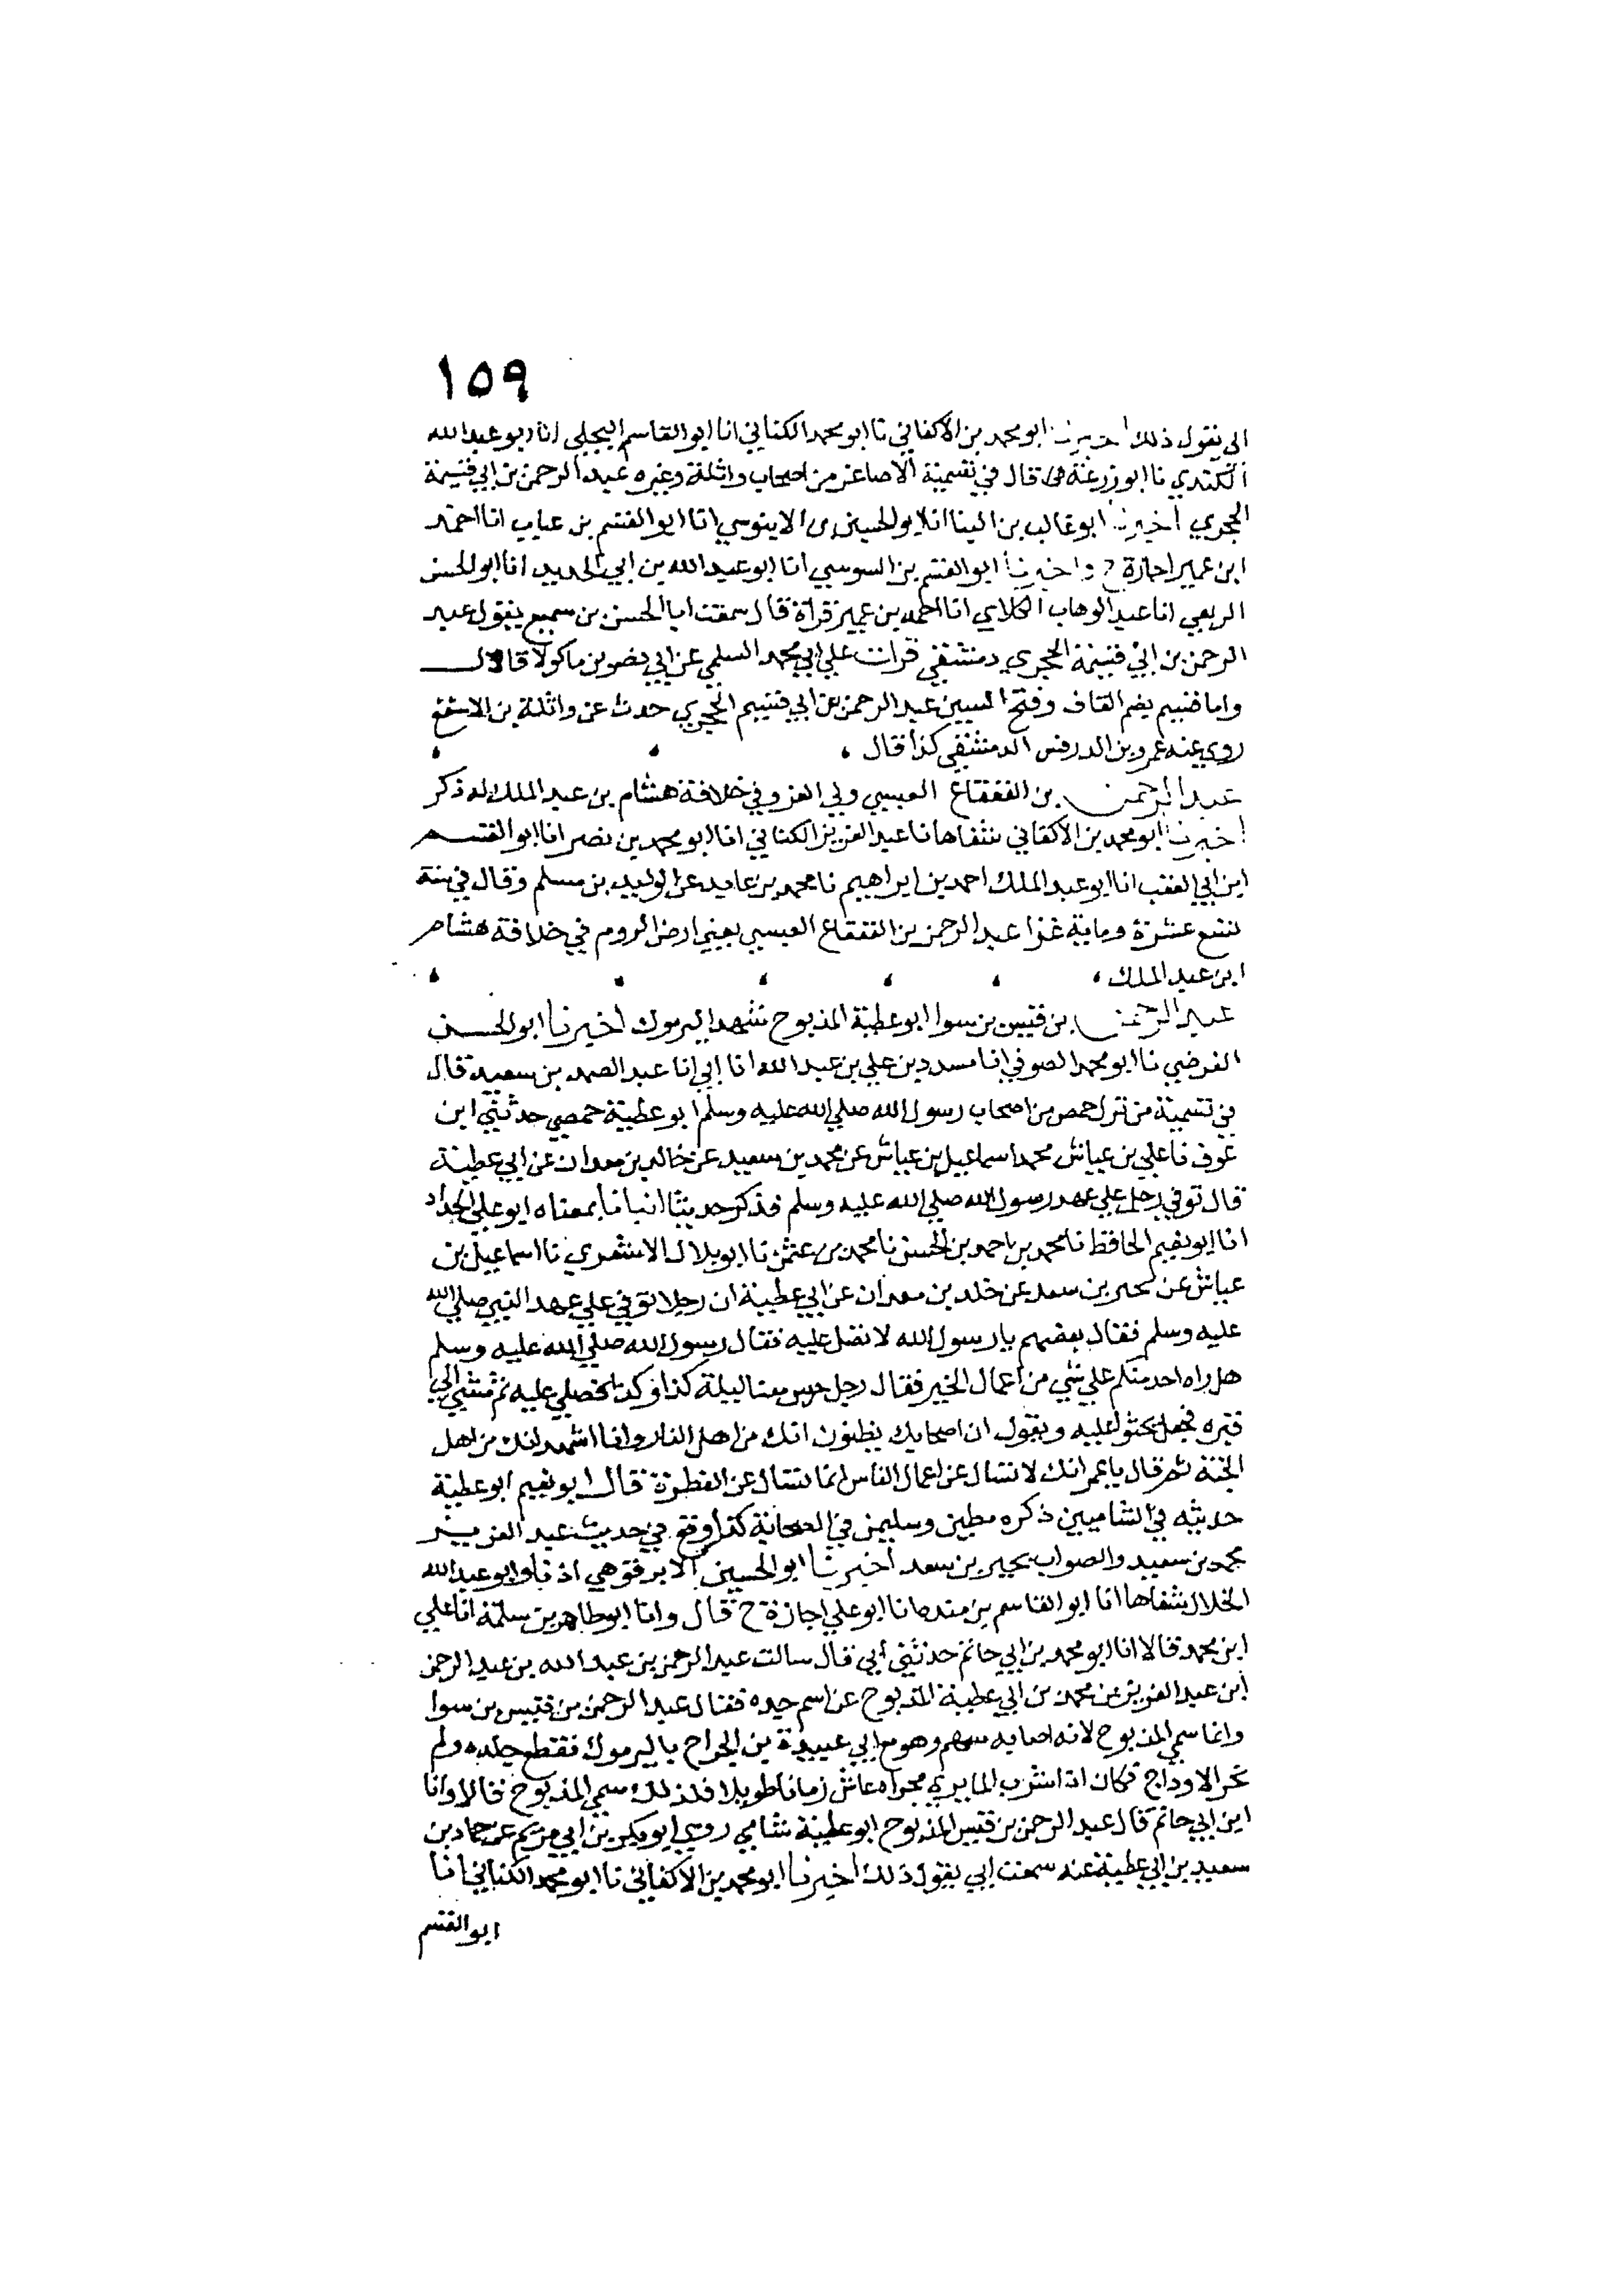 ١٥٩
ابي يقول ذلك اخبرنا ابو محمد بن الاكفاني نا ابو محمد الكتاني انا ابو القاسم البجلي انا ابو عبد الله
الكندي نا ابو زرعة قال في تسمية الاصاغر من اصحاب واثلة وغيره عبد الرحمن بن ابي قسيمة
الحجري اخبرنا ابو غالب بن البنا انا ابو الحسين بن الابنوسي انا ابو القسم بن عتاب انا احمد
ابن عمير اجازة ح واخبرنا ابو القسم بن السوسي انا ابو عبد الله بن ابي الحديد انا ابو الحسن
الربعي انا عبد الوهاب الكلابي انا احمد بن عمير قراة قال سمعت ابا الحسن بن سميع يقول عبد
الرحمن بن ابي قسيمة الحجري دمشقي قرات علي ابي محمد السلمي عن ابي نصر بن ماكولا قال
واما قسيم بضم القاف وفتح السيين عبد الرحمن بن ابي قسيم الحجري حدث عن واثلة بن الاسقع
روي عنه عمرو بن الدرفس الدمشقي كذا قال
عبد الرحمن بن القعقاع العبسي ولي الغزو في خلافة هشام بن عبد الملك له ذكر
اخبرنا ابو محمد بن الاكفاني شفاها نا عبد العزيز الكتاني انا ابو محمد بن نصر انا ابو القسم
ابن ابي العقب انا ابو عبد الملك احمد بن ابراهيم نا محمد بن عايد عن الوليد بن مسلم وقال في سنة
تسع عشرة وماية غزا عبد الرحمن بن القعقاع العبسي يعني ارض الروم في خلافة هشام
ابن عبد الملك
عبد الرحمن بن قيس بن سوا ابو عطية المذبوح شهد اليرموك اخبرنا ابو الحسن
الفرضي نا ابو محمد الصوفي انا مسدد بن علي بن عبد الله انا ابي انا عبد الصمد بن سعيد قال
في تسمية من نزل حمص من اصحاب رسول الله صلي الله عليه وسلم ابو عطية حمصي حدثني ابن
عوف نا علي بن عياش محمد اسماعيل بن عياش عن محمد بن سعيد عن خالد بن معدان عن ابي عطية
قال توفي رجل علي عهد رسول الله صلي الله عليه وسلم فذكر حديثا انبانا بمعناه ابو علي الحداد
انا ابو نعيم الحافظ نا محمد بن احمد بن الحسن نا محمد بن عثمن نا ابو بلال الاشعري نا اسماعيل بن
عياش عن بحير بن سعد عن خلد بن معدان عن ابي عطية ان رجلا توفي علي عهد النبي صلي الله
عليه وسلم فقال بعضهم يا رسول الله لا تصل عليه فقال رسول الله صلي الله عليه وسلم
هل راه احد منكم علي شي من اعمال الخير فقال رجل حرس معنا ليلة كذا وكذا فصلي عليه ثم مشي الي
قبره فجعل يحثو عليه ويقول ان اصحابك يظنون انك من اهل النار وانا اشهد انك من اهل
الجنة ثم قال يا عمر انك لا تسال عن اعمال الناس انما تسال عن الفطرة قال ابو نعيم ابو عطية
حديثه في الشاميين ذكره مطين وسليمن في الصحابة كذا وقع في حديث عبد العزيز
محمد بن سعيد والصواب بحير بن سعد اخبرنا ابو الحسين الابرقوهي اذنا وابو عبد الله
الخلال شفاها انا ابو القاسم بن منده انا ابو علي اجازة ح قال وانا ابو طاهر بن سلمة انا علي
ابن محمد قالا انا ابو محمد بن ابي حاتم حدثني ابي قال سالت عبد الرحمن بن عبد الله بن عبد الرحمن
ابن عبد العزيز بن محمد بن ابي عطية المذبوح عن اسم جده فقال عبد الرحمن بن قيس بن سوا
وانما سمي المذبوح لانه اصابه سهم وهو مع ابي عبيدة بن الجراح باليرموك فقطع جلده ولم
الاوداج فكان اذا شرب الما يري مجراه عاش زمانا طويلا فلذلك سمي المذبوح قالا وانا
ابن ابي حاتم قال عبد الرحمن بن قيس المذبوح ابو عطية شامي روي ابو بكر بن ابي مريم عن حماد بن
سعيد بن ابي عطية عنه سمعت ابي يقول ذلك اخبرنا ابو محمد بن الاكفاني نا ابو محمد الكتاني انا
ابو القسم